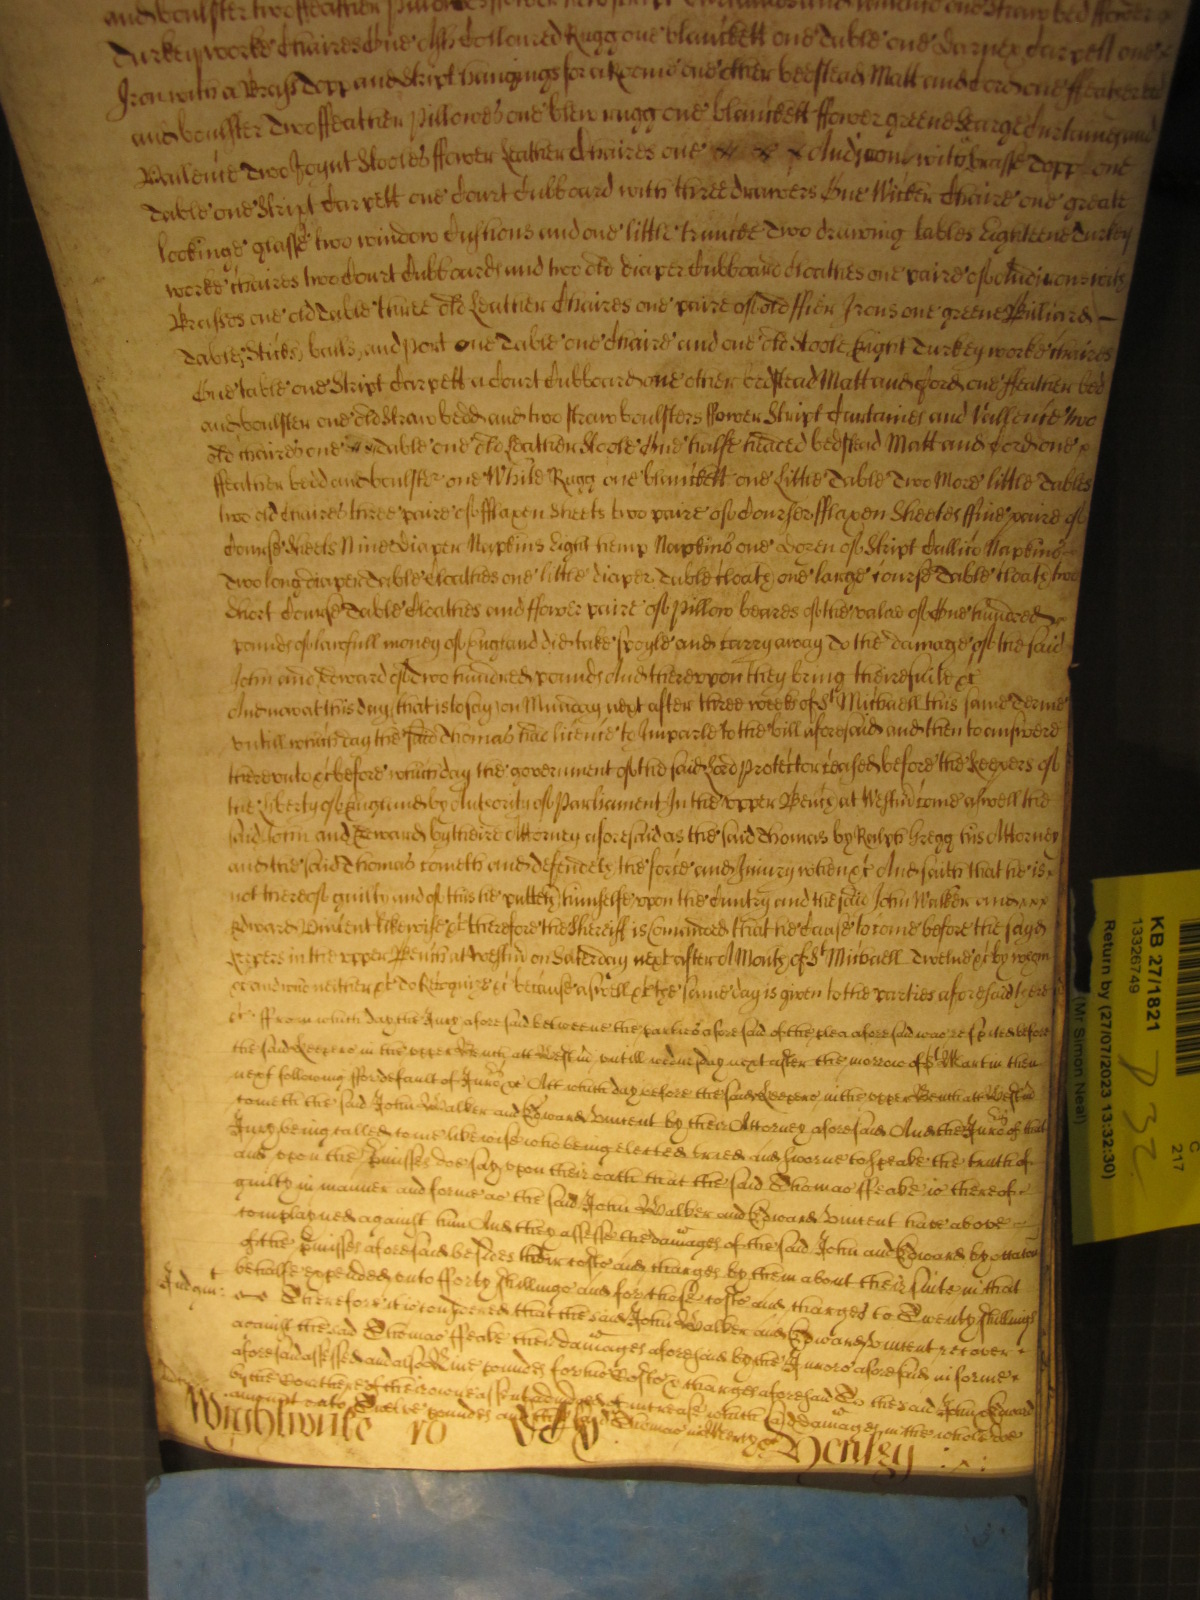 and boulster two ffeather pillowes ffower one straw bed ffower
Turkey worke Chaires One Ash Colloured Rugg one blanckett one Table one Darnex Carpett one
Iron with a Brass Topp and Stript hangings for a Roome one other bedstead Matt and Cord one ffeather bed
and boulster Two ffeather pillowes one blew rugg one blanckett ffower greene Searge Curtaines and
Vallence Two Joynt Stooles ffower Leather Chaires one Andiron with brasse Topp one
Table one Stript Carpett one Court Cubboard with three drawers One Wicker Chaire one greate
lookinge glasse two window Cushions and one little truncke Two drawing tables Eighteene Turkey
worke chaires two Court Cubbards and two old diaper Cubboard Cloathes one paire of Andirons with
Brasses one old Table three old Leather Chaires one paire of old ffier Irons one greene Billiard
Table, Sticks, balls, and Port One Table one Chaire and one old stoole Eight Turkey worke chaires
One table one Stript Carpett a Court Cubboard one other bedstead Matt and Cord one ffeather bed
and boulster one old Straw bedd and two straw boulsters ffower Stript Curtaines and Vallence two
old chaires one Table one old Leather Stoole One halfe headed bedstead Matt and Cord one
ffeather bedd and boulster one White Rugg one blanckett one Little Table Two More little Tables
two old Chaires three paire of fflaxen Sheets two paire of Courser fflaxen Sheetes ffive paire of
Course Sheets Nine Diaper Napkins Eight hemp Napkins one dozen of Stript Callico Napkins
Two long diaper Table Cloathes one little diaper Table Cloath, one large course Table Cloath, two
short Course Table Cloathes and ffower paire of Pillow beares of the value of One hundred
pounds of lawfull money of England did take spoyle and carry away To the damage of the said
John and Edward of Two hundred pounds And thereupon they bring their suite &c
And now at this day, that is to say on Munday next after three weeks of St Michaell this same Terme
untill which day the said Thomas had licence to Imparle to the bill aforesaid and then to answere
thereunto &c before which day the government of the said Lord Protector ceased, before the Keepers of
the liberty of England by Authority of Parliament In the upper Bench at Westmr come aswell the
said John and Edward by theire Attorney aforesaid as the said Thomas by Ralph Gregg his Attorney
and the said Thomas cometh and defendeth the force and Injury when &c And saith that he is
not thereof guilty and of this he putteth himselfe upon the Cuntry and the said John Walker and
Edward Vincent likewise &c therefore the Sheriff is Comanded that he cause to come before the said
Keepers in the upper Bench at Westmr on Saterday next after A Month of St Michaell Twelve &c by whom
&c and who neither &c To Recognize &c because aswell &c the same day is given to the parties aforesaid there
&c ffrom which day the Jury aforesaid betweene the parties aforesaid of the plea aforesaid was respited before
the said Keepers in the upper Bench att Westmr untill wednesday next after the morrow of St Martin then
next following ffor default of Jurors &c Att which day before the said Keepers in the upper Bench att Westmr
cometh the said John Walker and Edward Vincent by their Attorney aforesaid And the Jurors of that
Jury being called come likewise who being elected tried and sworne to speake the truth of
and upon the Premisses doe say upon their oath that the said Thomas ffeake is thereof
guilty in manner and forme as the said John Walker and Edward Vincent have above
complayned against him And they assesse the damages of the said John and Edward by occation
of the Premisses aforesaid besides their costs and charges by them about their suite in that
behalfe expended unto fforty shillings and for those costs and charges to Twenty shillings
Judgmt: Therefore it is considered that the said John Walker and Edward Vincent recover
against the said Thomas ffeake their damages aforesaid by the Jurors aforesaid in forme
aforesaid assessed and also Nine pounds for the Costs & charges aforesaid To the said John & Edward
by the Court here of their owne assent adjudged of increase which said damages in the whole doe
amount unto Twelve pounds and the said Thomas in Mercy &c
Wightwicke Henley
KB 27/1821
13326749
Return by (27/07/2023 13:32:30)
(Mr Simon Neal)
C
217